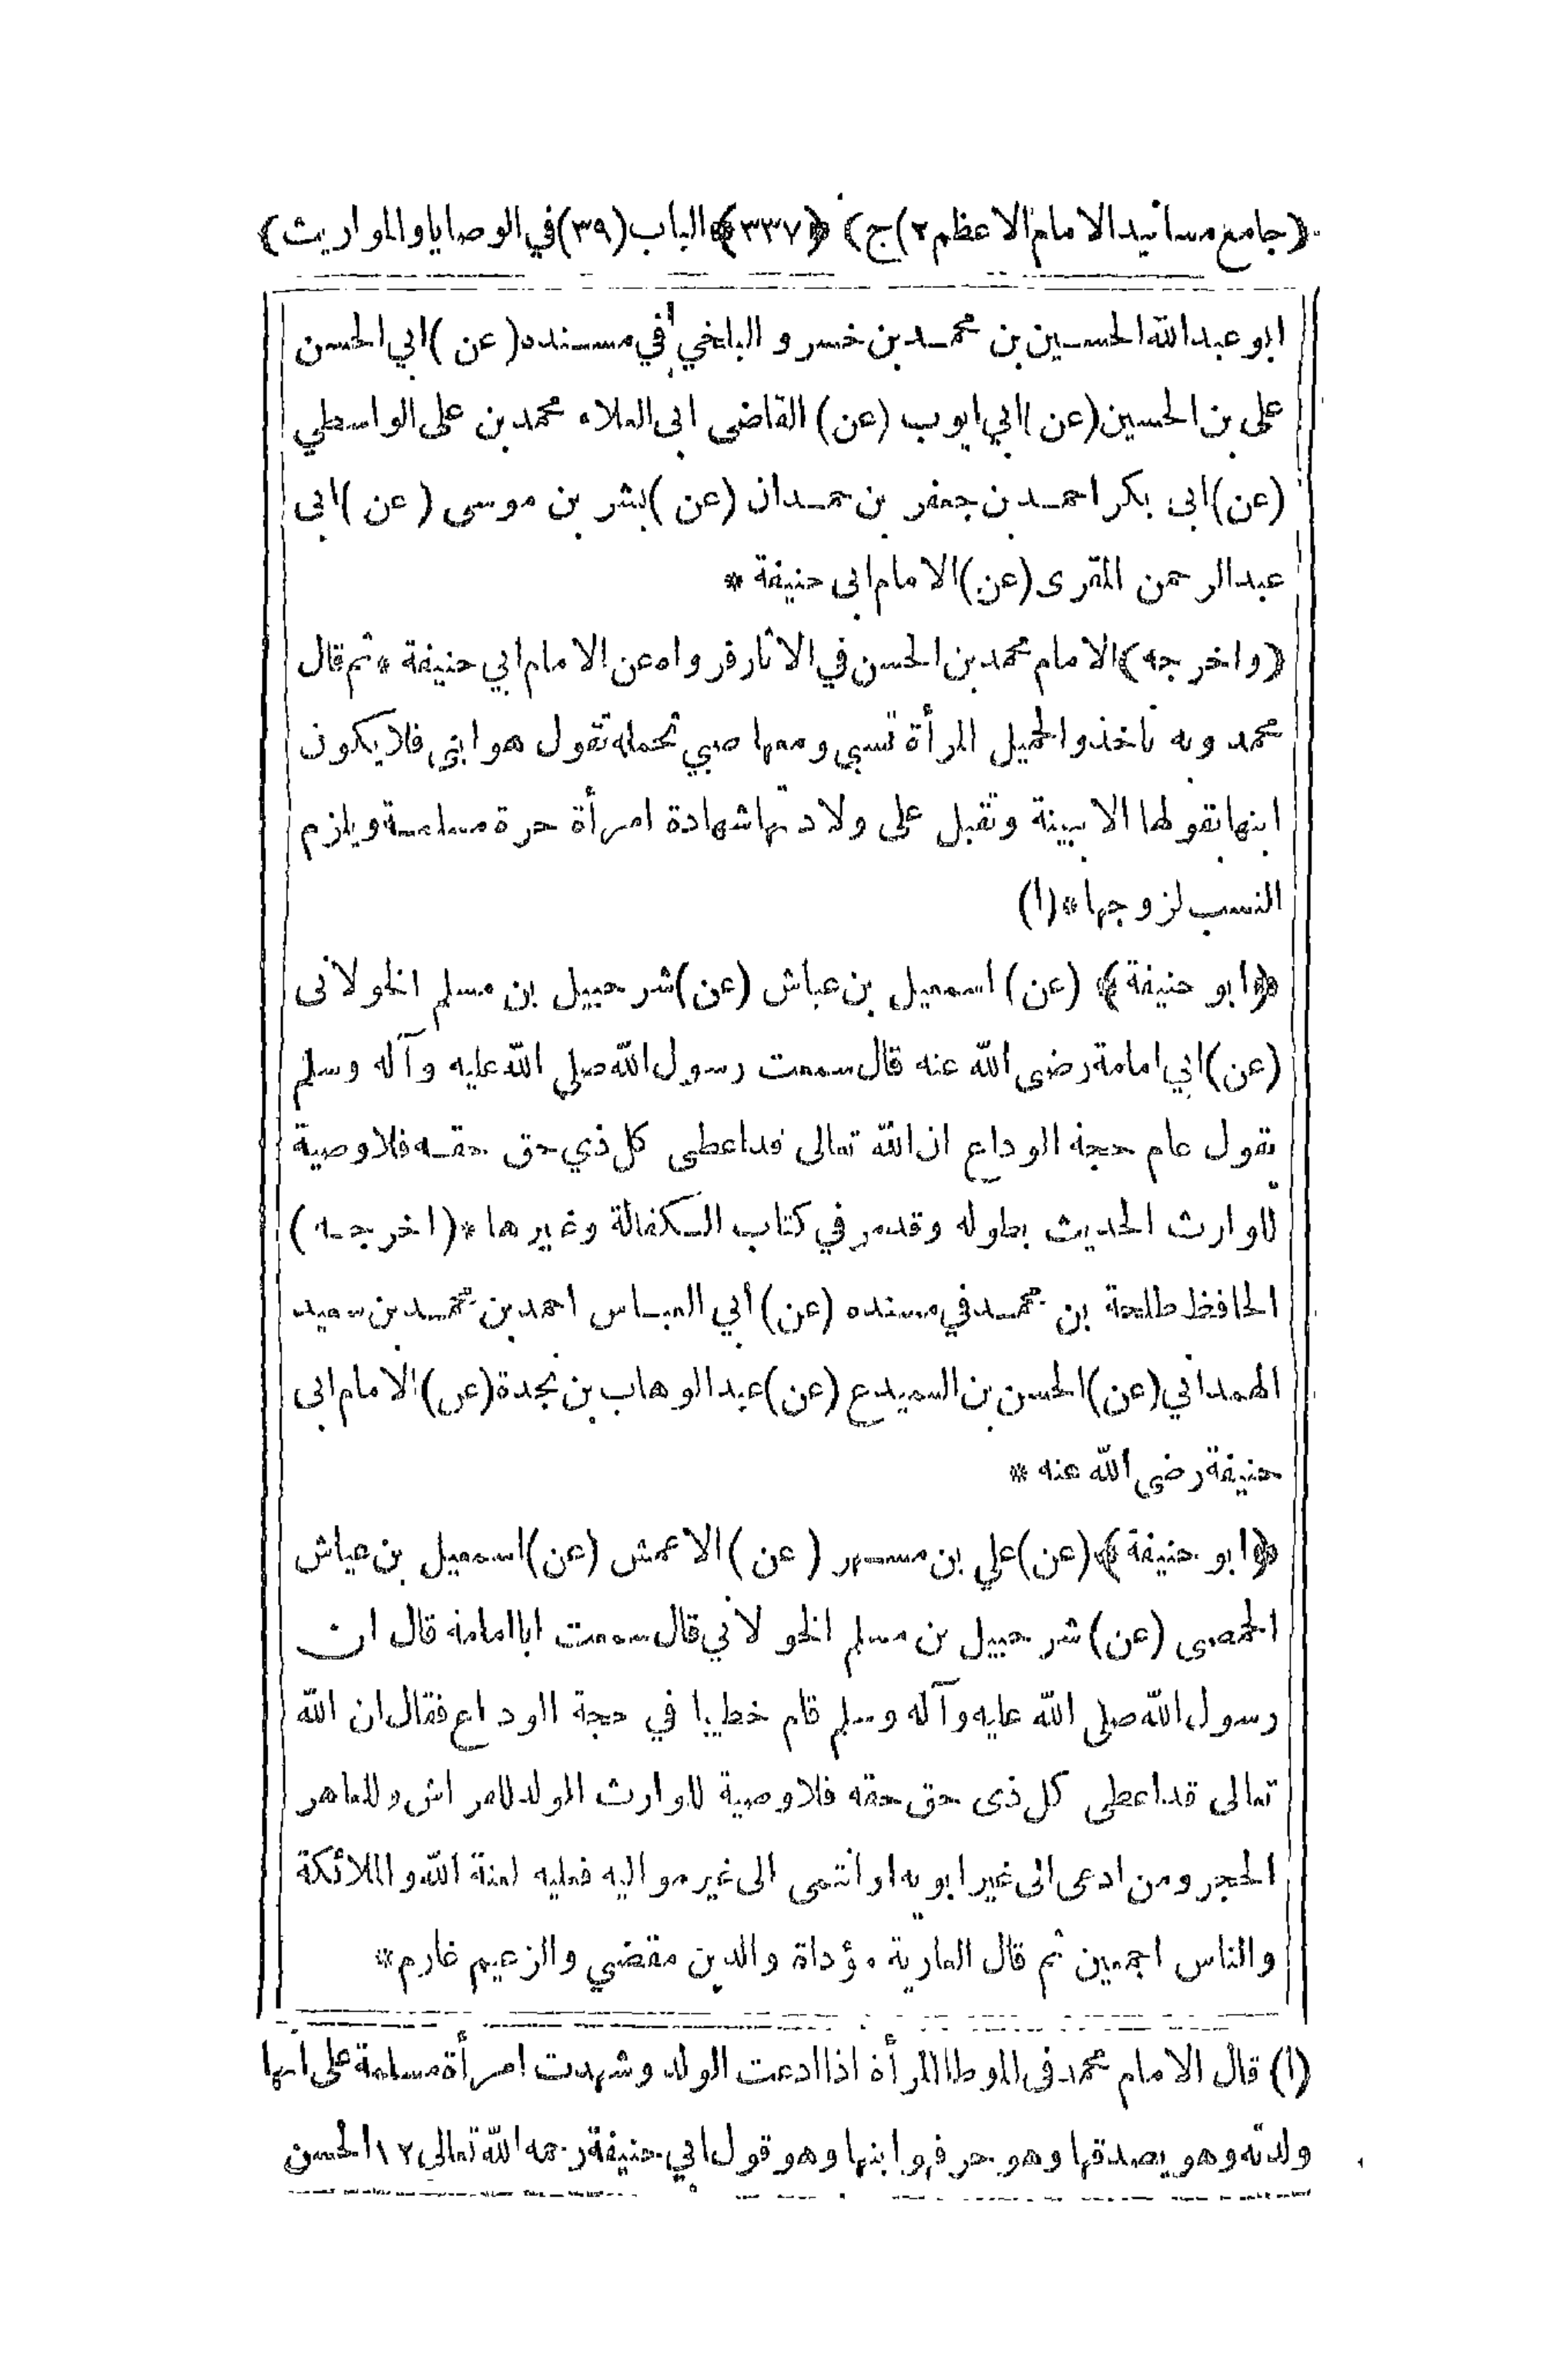 ﴿جامع مسانيد الامام الاعظم ٢)ج﴾ ﴿٣٣٧﴾ الباب (٣٩)في الوصايا والمواريث﴾
ابو عبدالله الحسين بن محمد بن خسرو البلخي في مسنده (عن) ابي الحسن
على بن الحسين (عن) ابي ايوب (عن) القاضى ابى العلاء محمد بن على الواسطي
(عن) ابى بكر احمد بن جعفر بن حمدان (عن) بشر بن موسى (عن) ابى
عبد الرحمن المقرى (عن) الامام ابى حنيفة *
﴿واخرجه﴾ الامام محمد بن الحسن في الاثار فرواه عن الامام ابي حنيفة * ثم قال
محمد وبه ناخذ والحميل المرأة تسبى ومعها صبي تحمله تقول هو ابنى فلا يكون
ابنها بقولها الا ببينة وتقبل على ولادتها شهادة امرأة حرة مسلمة ويلزم
النسب لزوجها * (١)
﴿ابو حنيفة﴾ (عن) اسمعيل بن عباش (عن) شرحبيل بن مسلم الخولانى
(عن) ابي امامة رضى الله عنه قال سمعت رسول الله صلى الله عليه وآله وسلم
يقول عام حجة الوداع ان الله تعالى قد اعطى كل ذي حق حقه فلا وصية
للوارث الحديث بطوله وقد مر في كتاب الكفالة وغيرها * (اخرجه)
الحافظ طلحة بن محمد في مسنده (عن) أبي العباس احمد بن محمد بن سعيد
الهمداني (عن) الحسن بن السميدع (عن) عبد الوهاب بن نجدة (عن) الامام ابى
حنيفة رضى الله عنه *
﴿ابو حنيفة﴾ (عن) علي بن مسهر (عن) الاعمش (عن) اسمعيل بن عياش
الحمصى (عن) شرحبيل بن مسلم الخولاني قال سمعت ابا امامة قال ان
رسول الله صلى الله عليه وآله وسلم قام خطيبا في حجة الوداع فقال ان الله
تعالى قد اعطى كل ذى حق حقه فلا وصية للوارث الولد للفراش وللعاهر
الحجر ومن ادعى الى غير ابويه او انتمى الى غير مواليه فعليه لعنة الله والملائكة
والناس اجمعين ثم قال العارية مؤداة والدين مقضي والزعيم غارم *
(١) قال الامام محمد فى الموطا المرأة اذا ادعت الولد وشهدت امرأة مسلمة على انها
ولدته وهو يصدقها وهو حر فهو ابنها وهو قول ابي حنيفة رحمه الله تعالى ١٢ الحسن